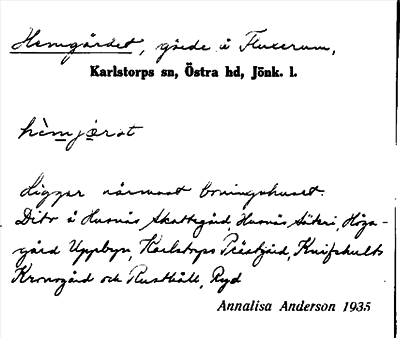 Hemgärdet, gärde å Fluxerum,
Karlstorps sn, Östra hd, Jönk. l.
hèmjærət
Ligger närmast boningshuset.
Dito å Husnäs Skattegård, Husnäs Säteri, Höga-
gård Uppbyn, Karlstorps Prästgård, Knifshults
Kronogård och Rusthåll, Ryd
Annalisa Anderson 1935